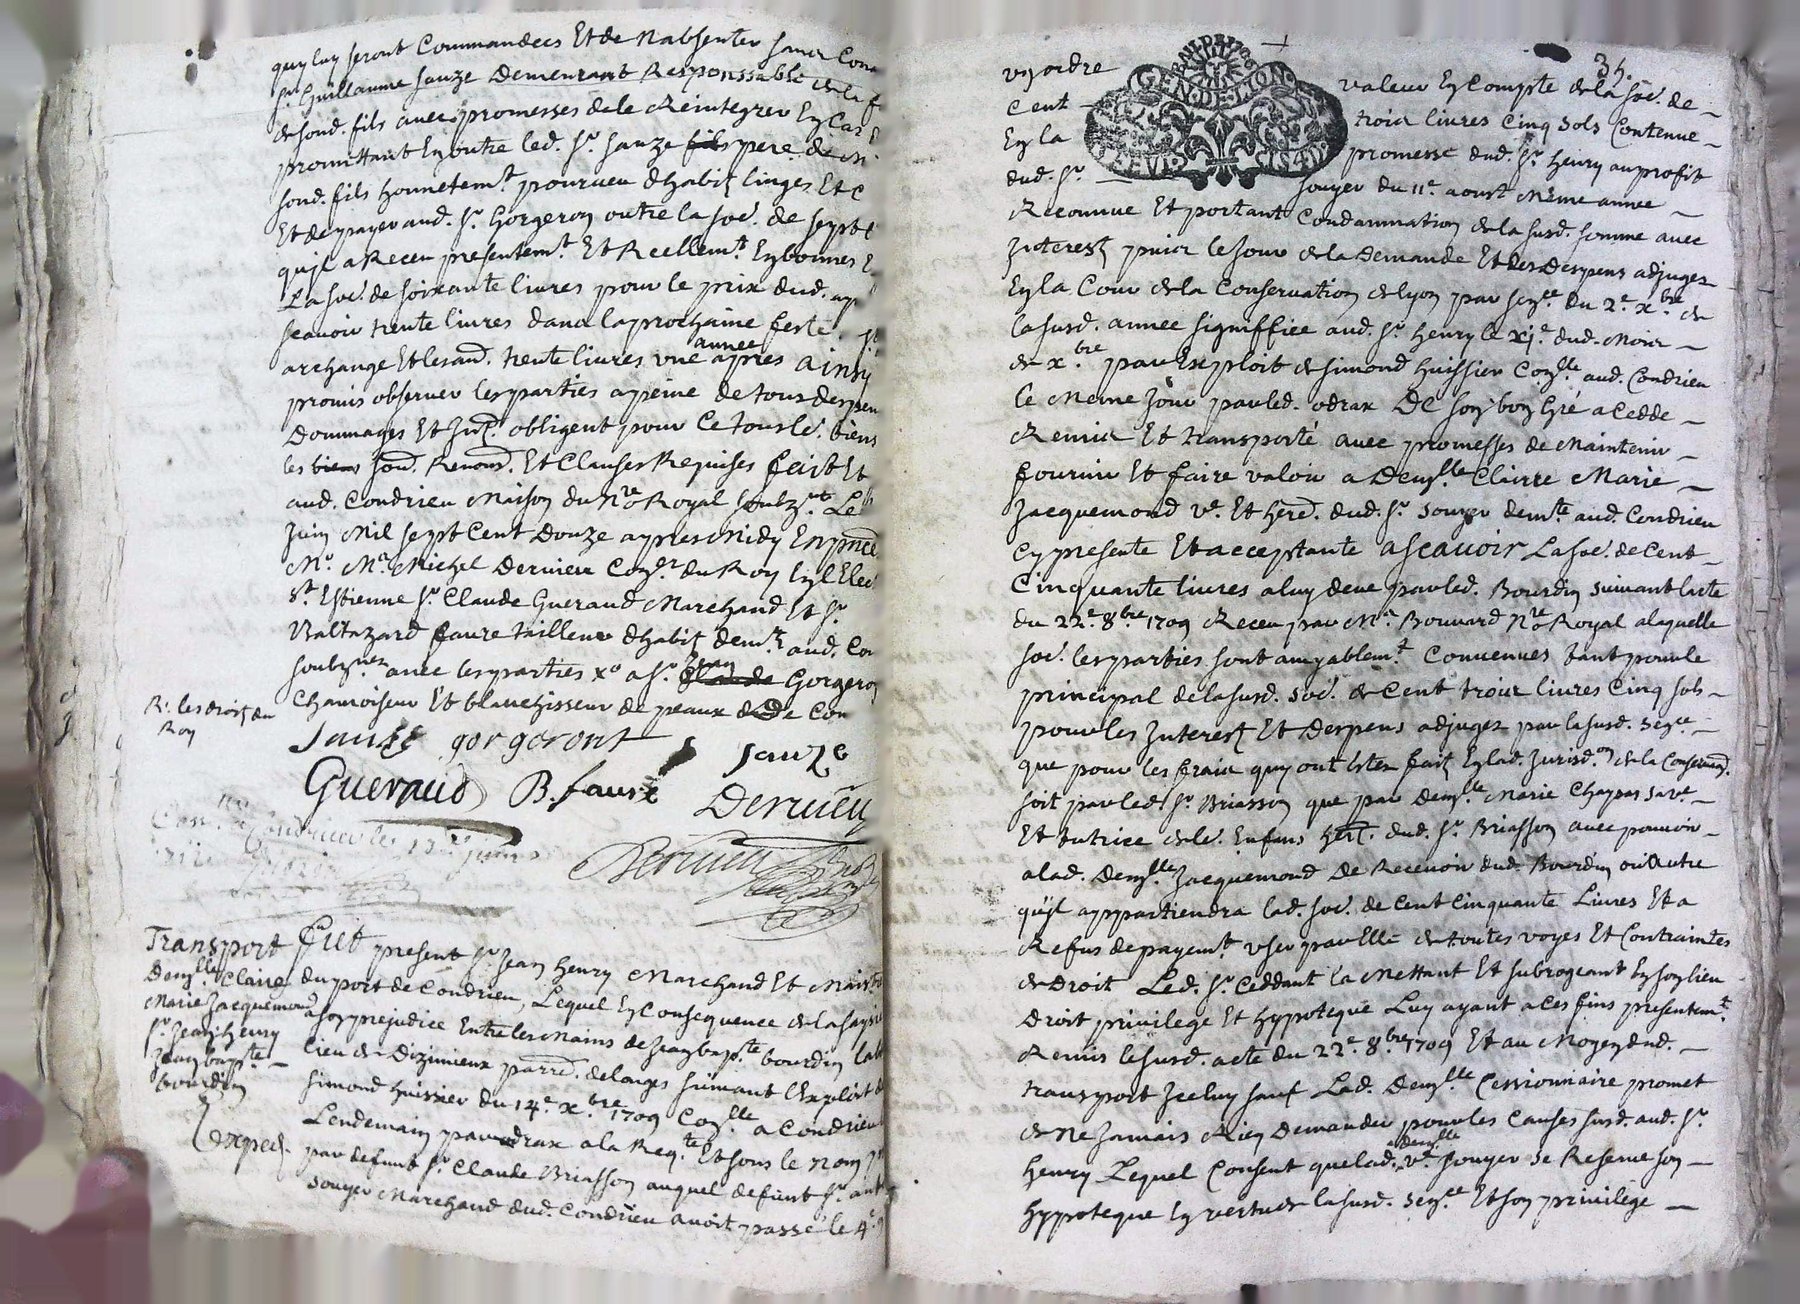 quy luy seront Commandees Et de Nabsenter sans Con
sr. Guillaume Sauze Demeurant Responssable de la f
de sond. fils avec promesses de le Reintegrer En Cas
promettant En outre led. sr. Sauze pere de
sond. fils honnetemt. pourveu dhabitz linges Et
Et de payer aud. sr. Gorgeron outre la so͞e. de sept
quil a Receu presentemt. Et Reellemt. En bonnes
La so͞e. de soixante livres pour le prix dud. ap
scavoir trente livres dans la prochaine feste. St
archange Et lesaud. trente livres une année apres ainsy
promis observer les parties a peine de tous despen
Dommages Et Int. obligent pour Ce tous le. biens
les biens soud. Renond. Et Clauses Requises fait Et
aud. Condrieu Maison du Nre Royal soubzné. Le
Juin Mil sept Cent Douze apres Midy En pnce
Mr. Me. Michel Dervieu Conser. du Roy En l Elec
St. Estienne sr. Claude Gueraud Marchand Et sr.
Baltazard faure tailleur dhabitz demts. aud. Con
soubznez avec les parties xo a sr. Jean Claude Gorgeron
Chamoiseur Et blanchisseur de peaux de Con
Rt. les droitz du
Roy
Sauze gorgeront Sauze
Gueraud B. faure Dervieu
Dervieu
Transport
Demlle Claire
Marie Jacquemond
sr. Jean henry
Jean bapte.
bourdin
exped.
fut present sr. Jean henry Marchand Et Maistre
du port de Condrieu, Lequel En Consequence de la saysie
a son prejudice Entre les Mains de Jean bapte. bourdin lab
lieu de Dizimieux parred. de longes suivant l Exploit de
simond huissier du 14e. xbre 1709 Conlle a Condrieu
Lendemain par odrax a la Reqte. Et sous le nom
par defunt sr. Claude Briasson auquel defunt sr.
souyer Marchand dud. Condrieu avoit passé le 4e.
35.
GEN. DE LION.
un ordre valeur En Compte de la so͞e. de
Cent trois livres Cinq sols Contenue
En la promesse dud. sr. henry au profit
dud. sr. souyer du 11e. aoust Mesme annee
Reconnue Et portant Condamnation de la susd. somme avec
Interestz puis le Jour de la Demande Et des despens adjugez
En la Cour de la Conservation de lyon par sence du 2e. xbre de
la susd. annee signiffiee aud. sr. henry le xje. dud. Mois
de xbre par Exploit de simond huissier Conlle. aud. Condrieu
le Meme Jour par led. odrax De son bon Gré a Cedde
Remis Et transporté avec promesses de Maintenir
fournir Et faire valoir a Demlle. Clairre Marie
Jacquemond ve. Et hered. dud. sr. souyer demte. aud. Condrieu
Cy presente Et acceptante ascavoir La so͞e. de Cent
Cinquante livres a luy deue par led. Bourdin suivant lacte
du 22e. 8bre 1709 Receu par Me. Bouvard Nre Royal a laquelle
so͞e. les parties sont amyablemt. Convenues tant pour le
principal de la susd. so͞e. de Cent trois livres Cinq sols
pour les Interestz Et Despens adjugez par la susd. sence.
que pour les frais quy ont Estez faitz En lad. Jurisdon de la Conservaon.
soit par led. sr. Briasson que par Demlle. Marie Chapas sa ve.
Et tutrice de le. Enfans hert. dud. sr. Briasson avec pouvoir
a lad. Demlle. Jacquemond De Recevoir dud. Bourdin ou autre
quil appartiendra lad. so͞e. de Cent Cinquante Livres Et a
Refus de payemt. user par Elle de toutes voyes Et Contraintes
de Droit Led. sr. Ceddant la Mettant Et subrogeant En son lieu
Droit privilege Et hypoteque Luy ayant a Ces fins presentemt.
Remis le susd. acte du 22e. 8bre 1709 Et au Moyen dud.
transport Iceluy sauf Lad. Demlle. Cessionnaire promet
de Ne Jamais Rien Demander pour les Causes susd. aud. sr.
henry Lequel Consent que lad. demlle ve. souyer se Reserve son
hypoteque En vertu de la susd. sence. Et son privilege